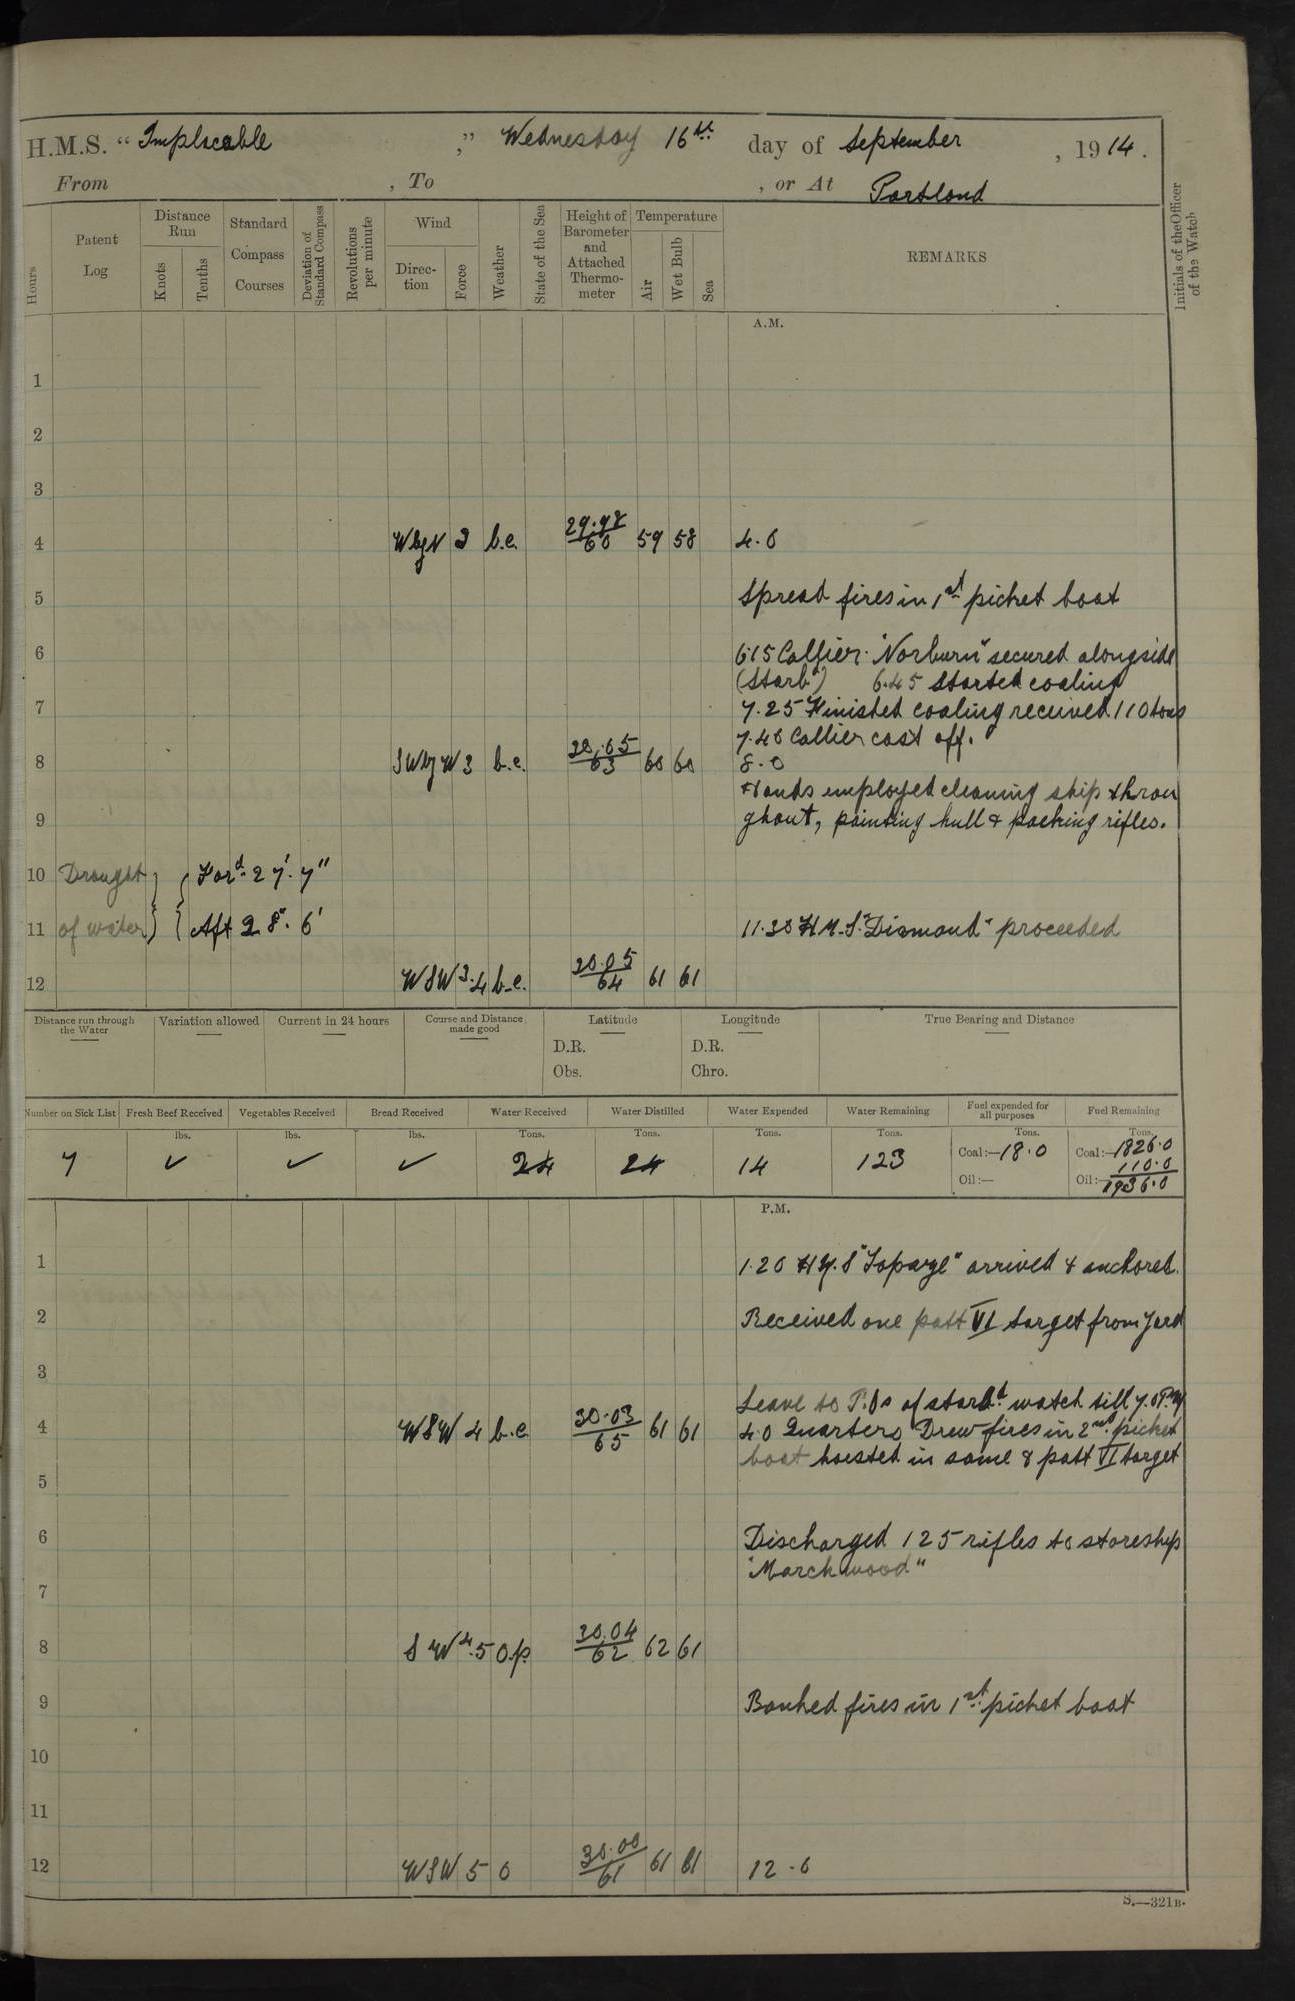 H.M.S. “ Implacable ,” Wednesday 16th day of September , 1914 .
From , To , or At Portland
Hours
Patent Log
Distance Run
Knots
Tenths
Standard Compass Courses
Deviation of Standard Compass
Revolutions per minute
Wind
Direc- tion
Force
Weather
State of the Sea
Height of Barometer and Attached Thermo- meter
Temperature
Air
Wet Bulb
Sea
REMARKS
Initials of the Officer of the Watch
A.M.
1
2
3
4 WbyN 3 b.c. 29.98/60 59 58 4.0
5 Spread fires in 1st picket boat
6 6.15 Collier "Norburn" secured alongside
(Starb.d) 6.45 Started coaling
7 7.25 Finished coaling received 110 tons
7.40 Collier cast off.
8 SWbyW 3 b.c. 30.05/63 60 60 8.0
Hands employed cleaning ship throu
9 ghout, painting hull & packing rifles.
10 Draught Ford 27' 7"
11 of water Aft 28". 6' 11.30 H.M.S. "Diamond" proceeded
12 WSW 3.4 b.c. 30.05/64 61 61
Distance run through the Water
Variation allowed
Current in 24 hours
Course and Distance made good
Latitude
D.R.
Obs.
Longitude
D.R.
Chro.
True Bearing and Distance
Number on Sick List Fresh Beef Received Vegetables Received Bread Received Water Received Water Distilled Water Expended Water Remaining Fuel expended for all purposes Fuel Remaining
lbs. lbs. lbs. Tons. Tons. Tons. Tons. Tons. Tons.
7 ✓ ✓ ✓ 24 24 14 123 Coal:—18.0 Coal:—1826.0
110.0
Oil:— Oil:—1936.0
P.M.
1 1.20 H.M.S "Topaze" arrived & anchored.
2 Received one patt VI target from Yard
3
Leave to P.Os of starbd watch till 7.0 PM
4 WSW 4 b.c 30.03/65 61 61 4.0 Quarters Drew fires in 2nd picket
boat hoisted in same & patt VI target
5
6 Discharged 125 rifles to storeship
"Marchwood"
7
8 SW 4.5 o.p. 30.04/62 62 61
9 Banked fires in 1st picket boat
10
11
12 WSW 5 o 30.00/61 61 61 12.0
S.—321B.